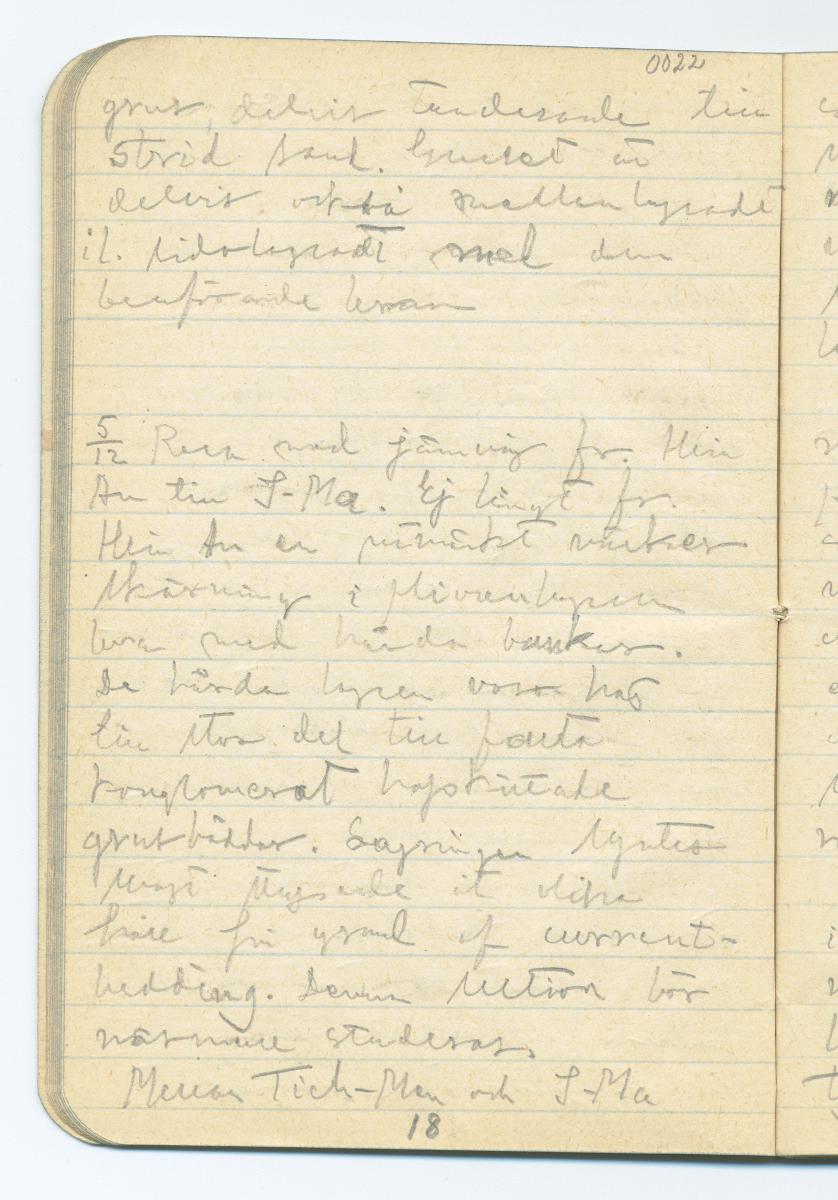 0022
grus, delvis tenderande till
strid sand. Gruset är
delvis också mellanlagradt
il. sidolagradt med den
benförande leran
5/12 Resa med järnväg fr. Hein
An till I-Ma. Ej långt fr.
Hein An en utmärkt vacker
skärning i pliocenlagren
lera med hårda bankar.
De hårda lagren voro nog
till stor del till fasta
konglomerat hopkittade
grusbäddar. Lagringen syntes
svagt stupande åt olika
håll på grund af current-
bedding. Denna sektion bör
närmare studeras.
Mellan Tieh-Men och I-Ma
18